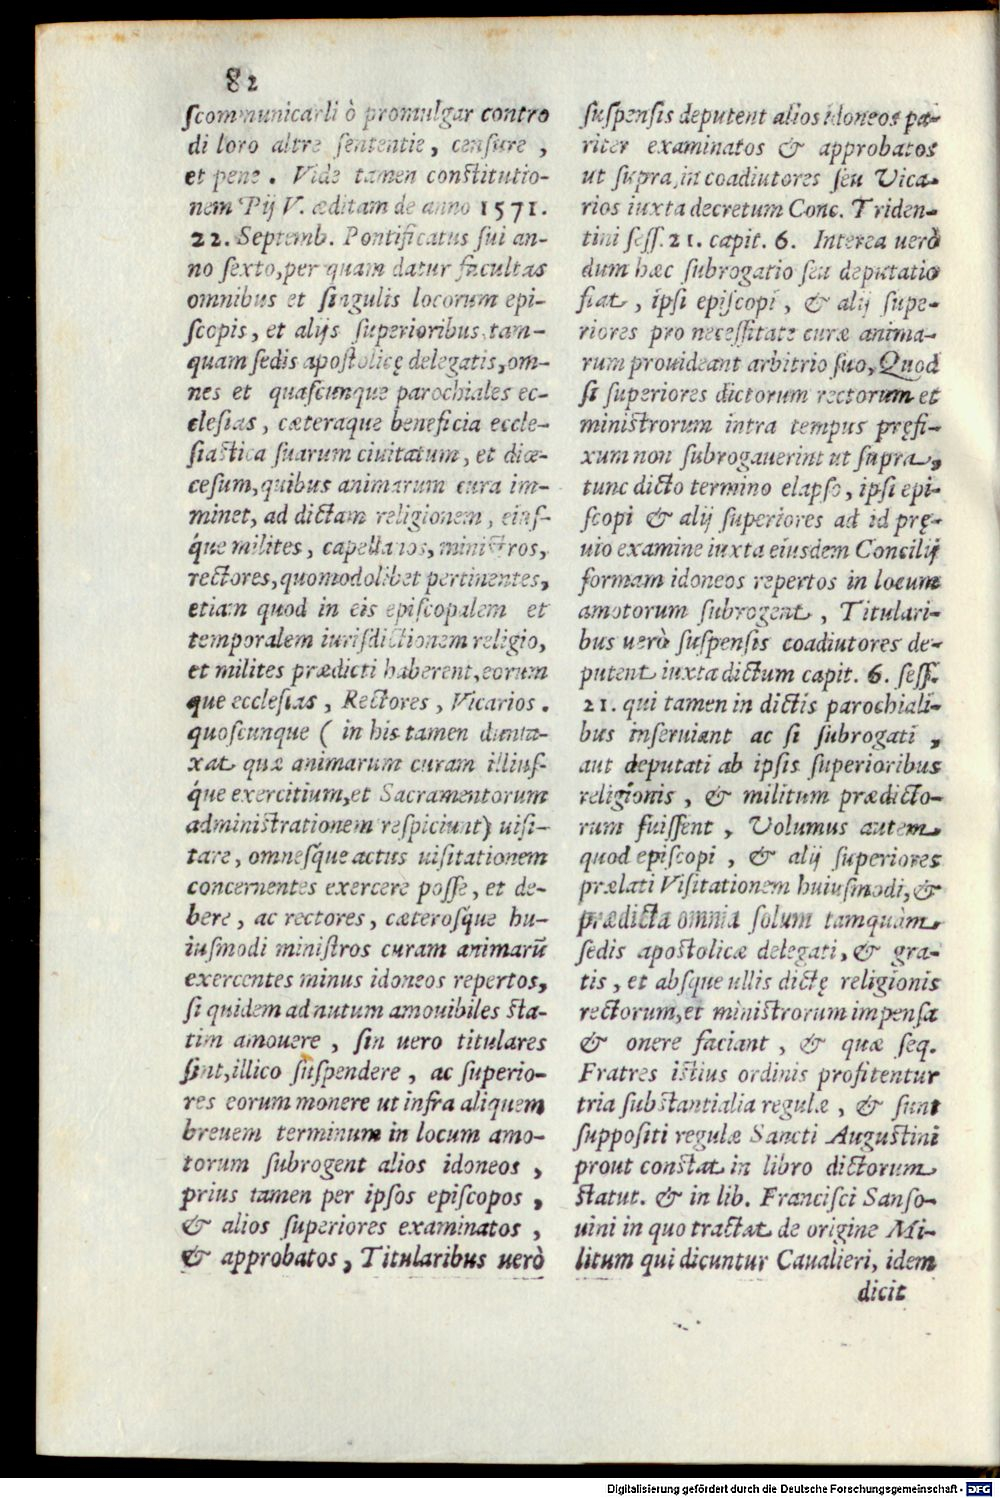 82
scommunicarli ò promulgar contro
di loro altre sententie, censure,
et pene. Vide tamen constitutio-
nem Pij V. æditam de anno 1571.
22. Septemb. Pontificatus sui an-
no sexto, per quam datur facultas
omnibus et singulis locorum epi-
scopis, et alijs superioribus, tam-
quam sedis apostolicę delegatis, om-
nes et quascunque parochiales ec-
clesias, cæteraque beneficia eccle-
siastica suarum ciuitatum, et diœ-
cesum, quibus animarum cura im-
minet, ad dictam religionem, eius-
q́ue milites, capellanos, ministros,
rectores, quomodolibet pertinentes,
etiam quod in eis episcopalem et
temporalem iurisdictionem religio,
et milites prædicti haberent, eorum
que ecclesias, Rectores, Vicarios.
quoscunque ( in his tamen dunta-
xat quæ animarum curam illius-
q́ue exercitium, et Sacramentorum
administrationem respiciunt) uisi-
tare, omnesq́ue actus uisitationem
concernentes exercere posse, et de-
bere, ac rectores, cæterosq́ue hu-
iusmodi ministros curam animarũ
exercentes minus idoneos repertos,
si quidem ad nutum amouibiles sta-
tim amouere, sin uero titulares
sint, illico suspendere, ac superio-
res eorum monere ut infra aliquem
breuem terminum in locum amo-
torum subrogent alios idoneos,
prius tamen per ipsos episcopos,
& alios superiores examinatos,
& approbatos, Titularibus uerò
suspensis deputent alios idoneos pa-
riter examinatos & approbatos
ut supra, in coadiutores seu Vica-
rios iuxta decretum Conc. Triden-
tini sess. 21. capit. 6. Interea uerò
dum hæc subrogatio seu deputatio
fiat, ipsi episcopi, & alij supe-
riores pro necessitate curæ anima-
rum prouideant arbitrio suo, Quod
si superiores dictorum rectorum et
ministrorum intra tempus pręfi-
xum non subrogauerint ut supra,
tunc dicto termino elapso, ipsi epi-
scopi & alij superiores ad id prę-
uio examine iuxta eiusdem Concilij
formam idoneos repertos in locum
amotorum subrogent, Titulari-
bus uerò suspensis coadiutores de-
putent iuxta dictum capit. 6. sess.
21. qui tamen in dictis parochiali-
bus inseruiant ac si subrogati,
aut deputati ab ipsis superioribus
religionis, & militum prædicto-
rum fuissent, Volumus autem
quod episcopi, & alij superiores
prælati Visitationem huiusmodi, &
prædicta omnia solum tamquàm
sedis apostolicæ delegati, & gra-
tis, et absque ullis dictę religionis
rectorum, et ministrorum impensa
& onere faciant, & quæ seq.
Fratres istius ordinis profitentur
tria substantialia regulæ, & sunt
suppositi regulæ Sancti Augustini
prout constat in libro dictorum
statut. & in lib. Francisci Sanso-
uini in quo tractat de origine Mi-
litum qui dicuntur Caualieri, idem
dicit
Digitalisierung gefördert durch die Deutsche Forschungsgemeinschaft - DFG